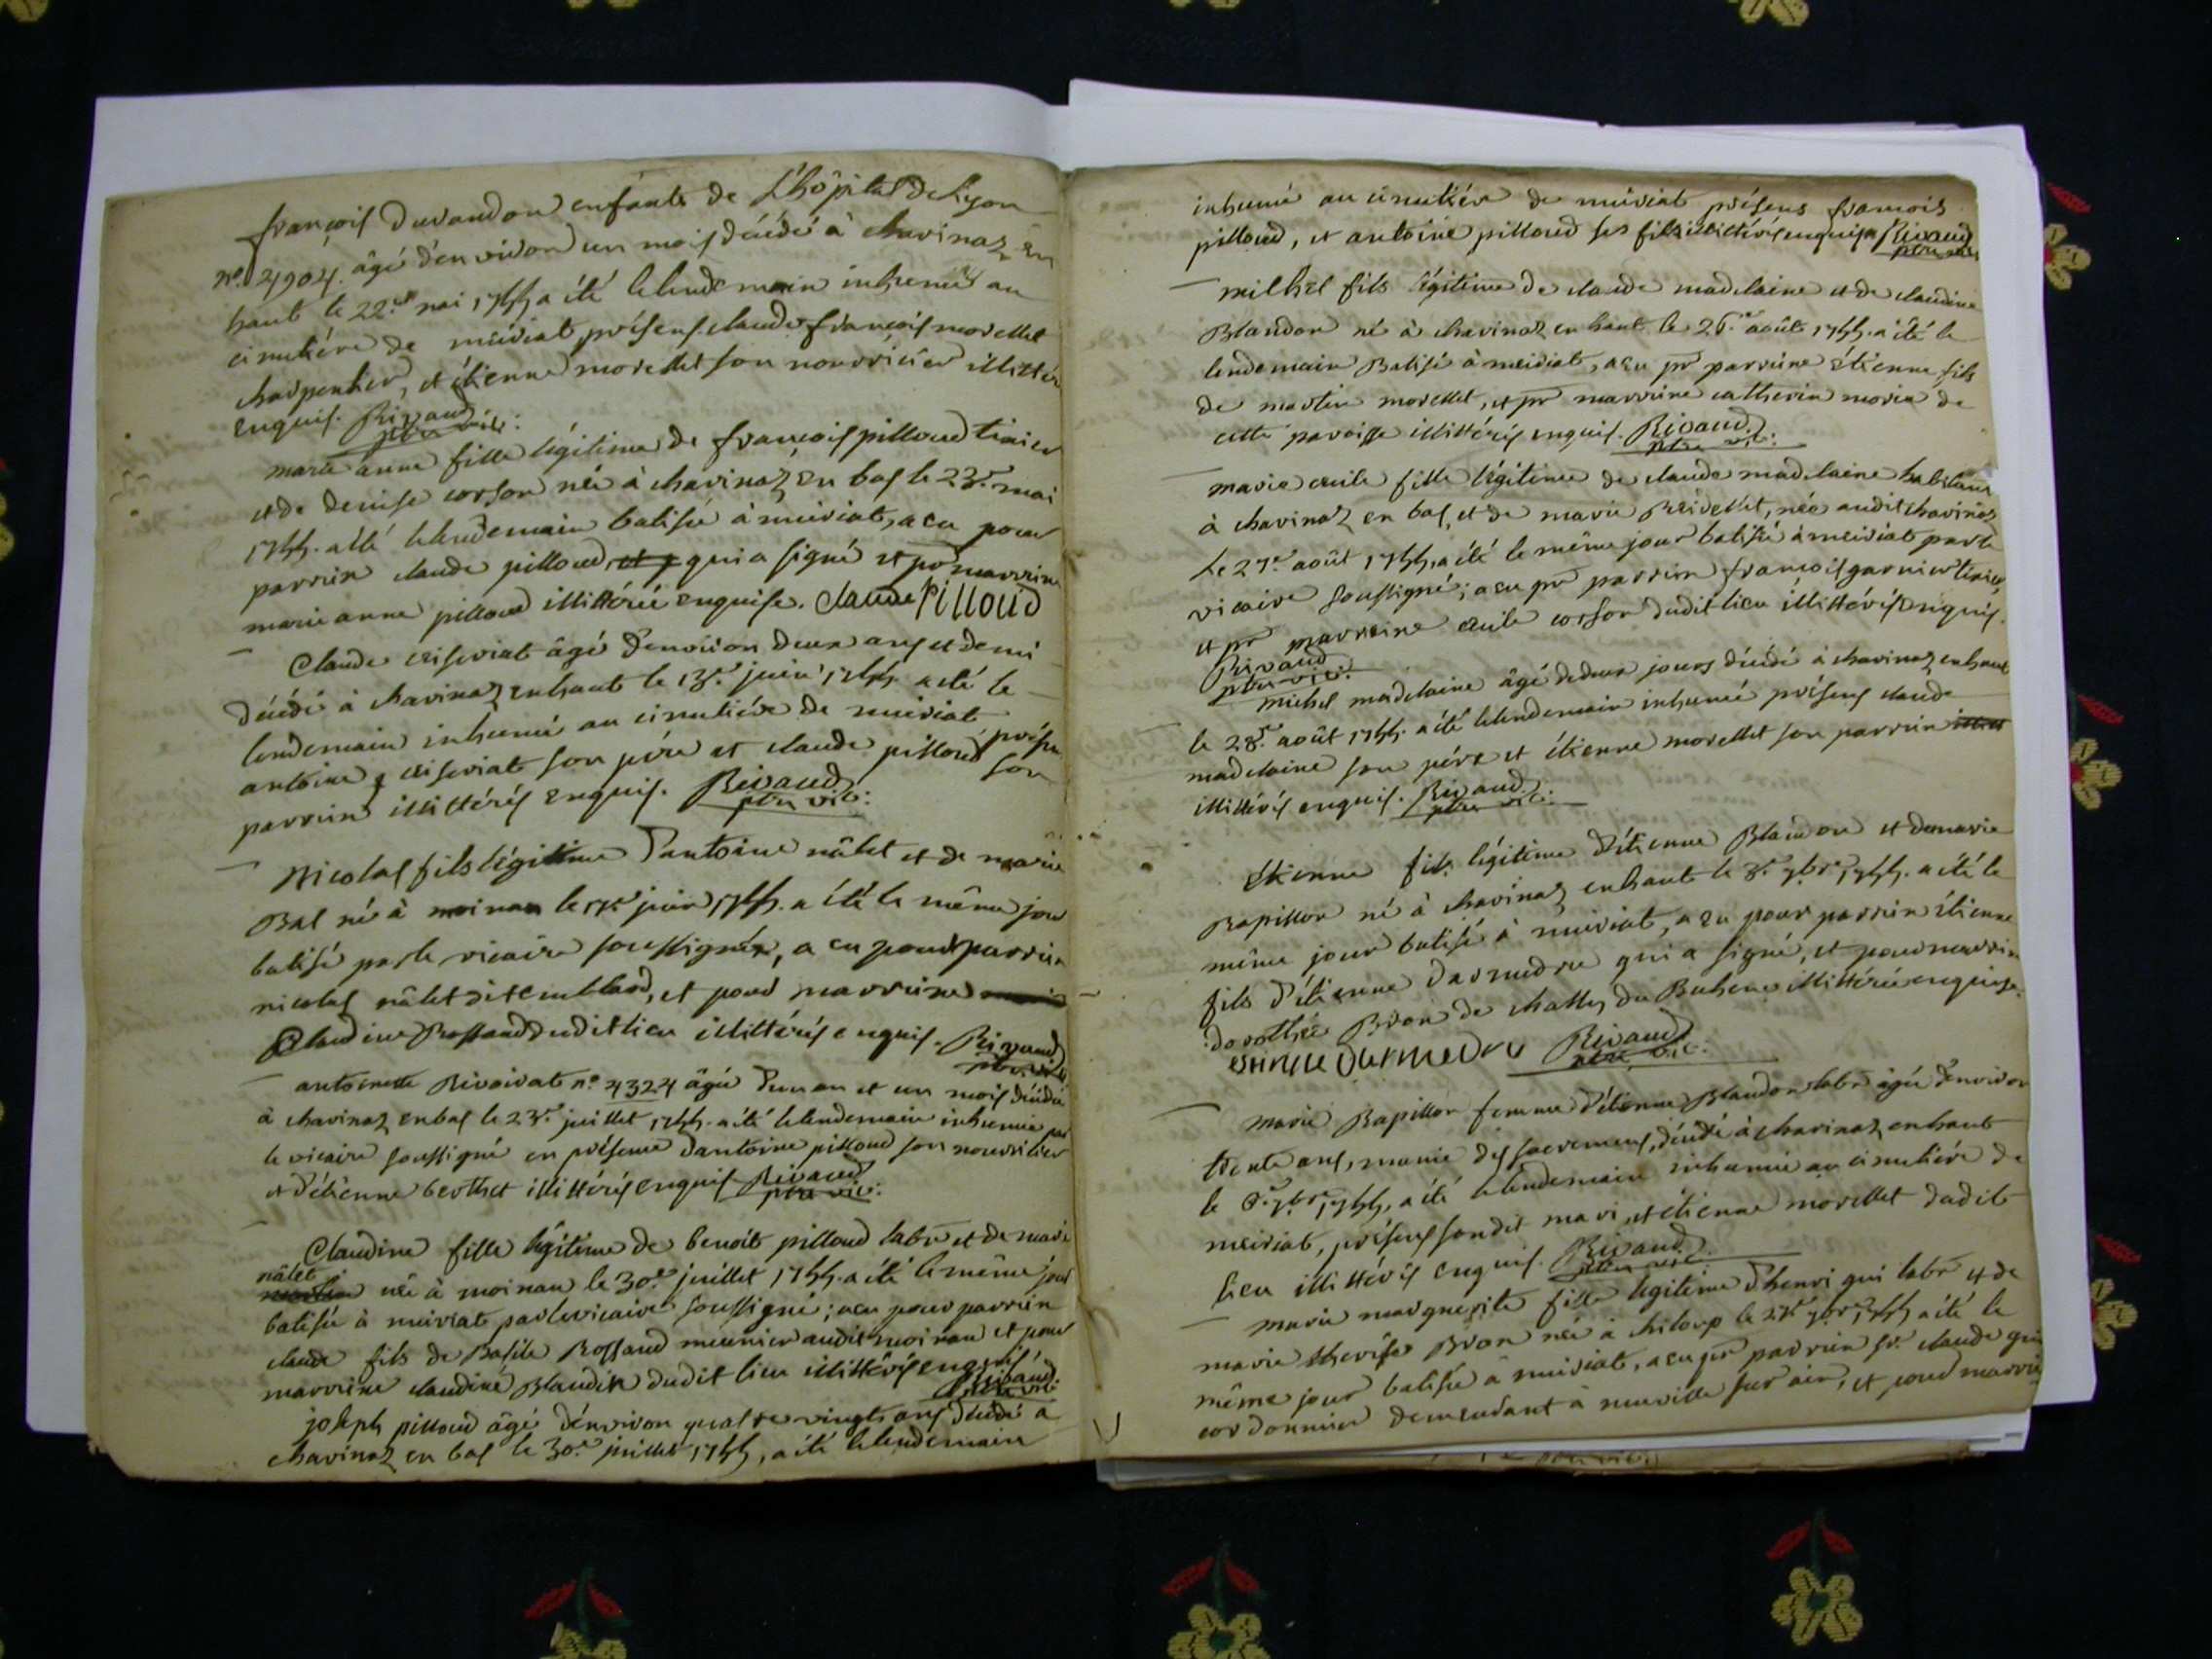 françois duvandon enfants de L'hôpital de Lyon
n.º 4904. âgé d'environ un mois décédé à chavinaz en
haut le 22.e mai 1755 a été le lendemain inhumé au
cimetiére de meiriat, présens claude françois morellet
charpentier, et étienne morellet son nourricier illittér
enquis. Rivaud ptre vic:
marie anne fille légitime de françois pilloud
et de denise corson née à chavinaz en bas le 23.e mai
1755. a été le lendemain batisée à meiriat, a eu pour
parrein claude pilloud qui a signé et pr marreine
marie anne pilloud illittérée enquise. claude Pilloud
Claude âgé d'environ deux ans et demi
décédé à chavinaz en haut le 13.e juin 1755 a été le
lendemain inhumé au cimetiére de meiriat présens
antoine son pére et claude pilloud son
parrein illittérés enquis. Rivaud ptre vic:
Nicolas fils légitime d'antoine nâlet et de marie
Bal né à moinan le juin 1755. a été le même jour
batisé par le vicaire soussigné, a eu pour parrein
nicolas nâlet dit et pour marreine
Claudine Rossand dudit lieu illittérés enquis. Rivaud ptre vic
antoinette Rivoirat n.º 4324 âgée d'un an et un mois décédée
à chavinaz en bas le 23.e juillet 1755. a été le lendemain inhumée par
le vicaire soussigné en présence d'antoine pilloud son nourricier
et d'étienne berthet illittérés enquis Rivaud ptre vic:
Claudine fille légitime de benoit pilloud labr et de marie
nâlet
née à moinan le 30.e juillet 1755. a été le même jour
batisée à meiriat par le vicaire soussigné; a eu pour parrein
claude fils de Basile Rossand meunier audit moinan et pour
marreine claudine Blaudin dudit lieu illittérés enquis Rivaud ptre vic:
joseph pilloud âgé d'environ quatre vingts ans décédé à
chavinaz en bas le 30.e juillet 1755, a été le lendemain
inhumé au cimetiére de meiriat présens francois
pilloud, et antoine pilloud ses fils illittérés enquis Rivaud ptre vic
milhel fils légitime de claude madelaine et de claudine
Blandon né à chavinaz en haut le 26.e août 1755. a été le
lendemain Batisé à meiriat, a eu pr parreine étienne fils
de martin morellet, et pr marreine catherin morin de
cette paroisse illittérés enquis. Rivaud. ptre vic:
marie cecile fille légitime de claude madelaine habitant
à chavinaz en bas, et de marie Reidellet, née audit chavinaz
Le 27.e août 1755, a été le même jour batisée à meiriat par le
vicaire soussigné; a eu pr parrein françois garnier
et pr marreine cecile corson dudit lieu illittérés enquis.
Rivaud ptre vic:
michel madelaine âgé de deux jours décédé à chavinaz en haut
le 28.e août 1755. a été le lendemain inhumé présens claude
madelaine son pére et étienne morellet son parrein
illittérés enquis. Rivaud. ptre vic:
étienne fils légitime d'étienne Blandon et de marie
Rapillon né à chavinaz en haut le 8.e 7bre 1755. a été le
même jour batisé à meiriat, a eu pour parrein étienne
fils d'étienne darmedru qui a signé, et pour marrein
dorothée Bron de challes du Buhene illittérée enquise.
darmedru Rivaud ptre vic:
marie Rapillon femme d'étienne Blandon labr âgée d'environ
trente ans, munie des sacremens, décédée à chavinaz en haut
le 7bre 1755, a été le lendemain inhumée au cimetiére de
meiriat, présens sondit mari, et étienne morellet dudit
lieu illittérés enquis. Rivaud. ptre vic:
marie marguerite fille légitime d'henri gui labr et de
marie thérése Bron née à chiloup le 7bre 1755 a été le
même jour batisée à meiriat, a eu pr parrein sr. claude gui
cordonnier demeurant à neuville sur ain, et pour marrein